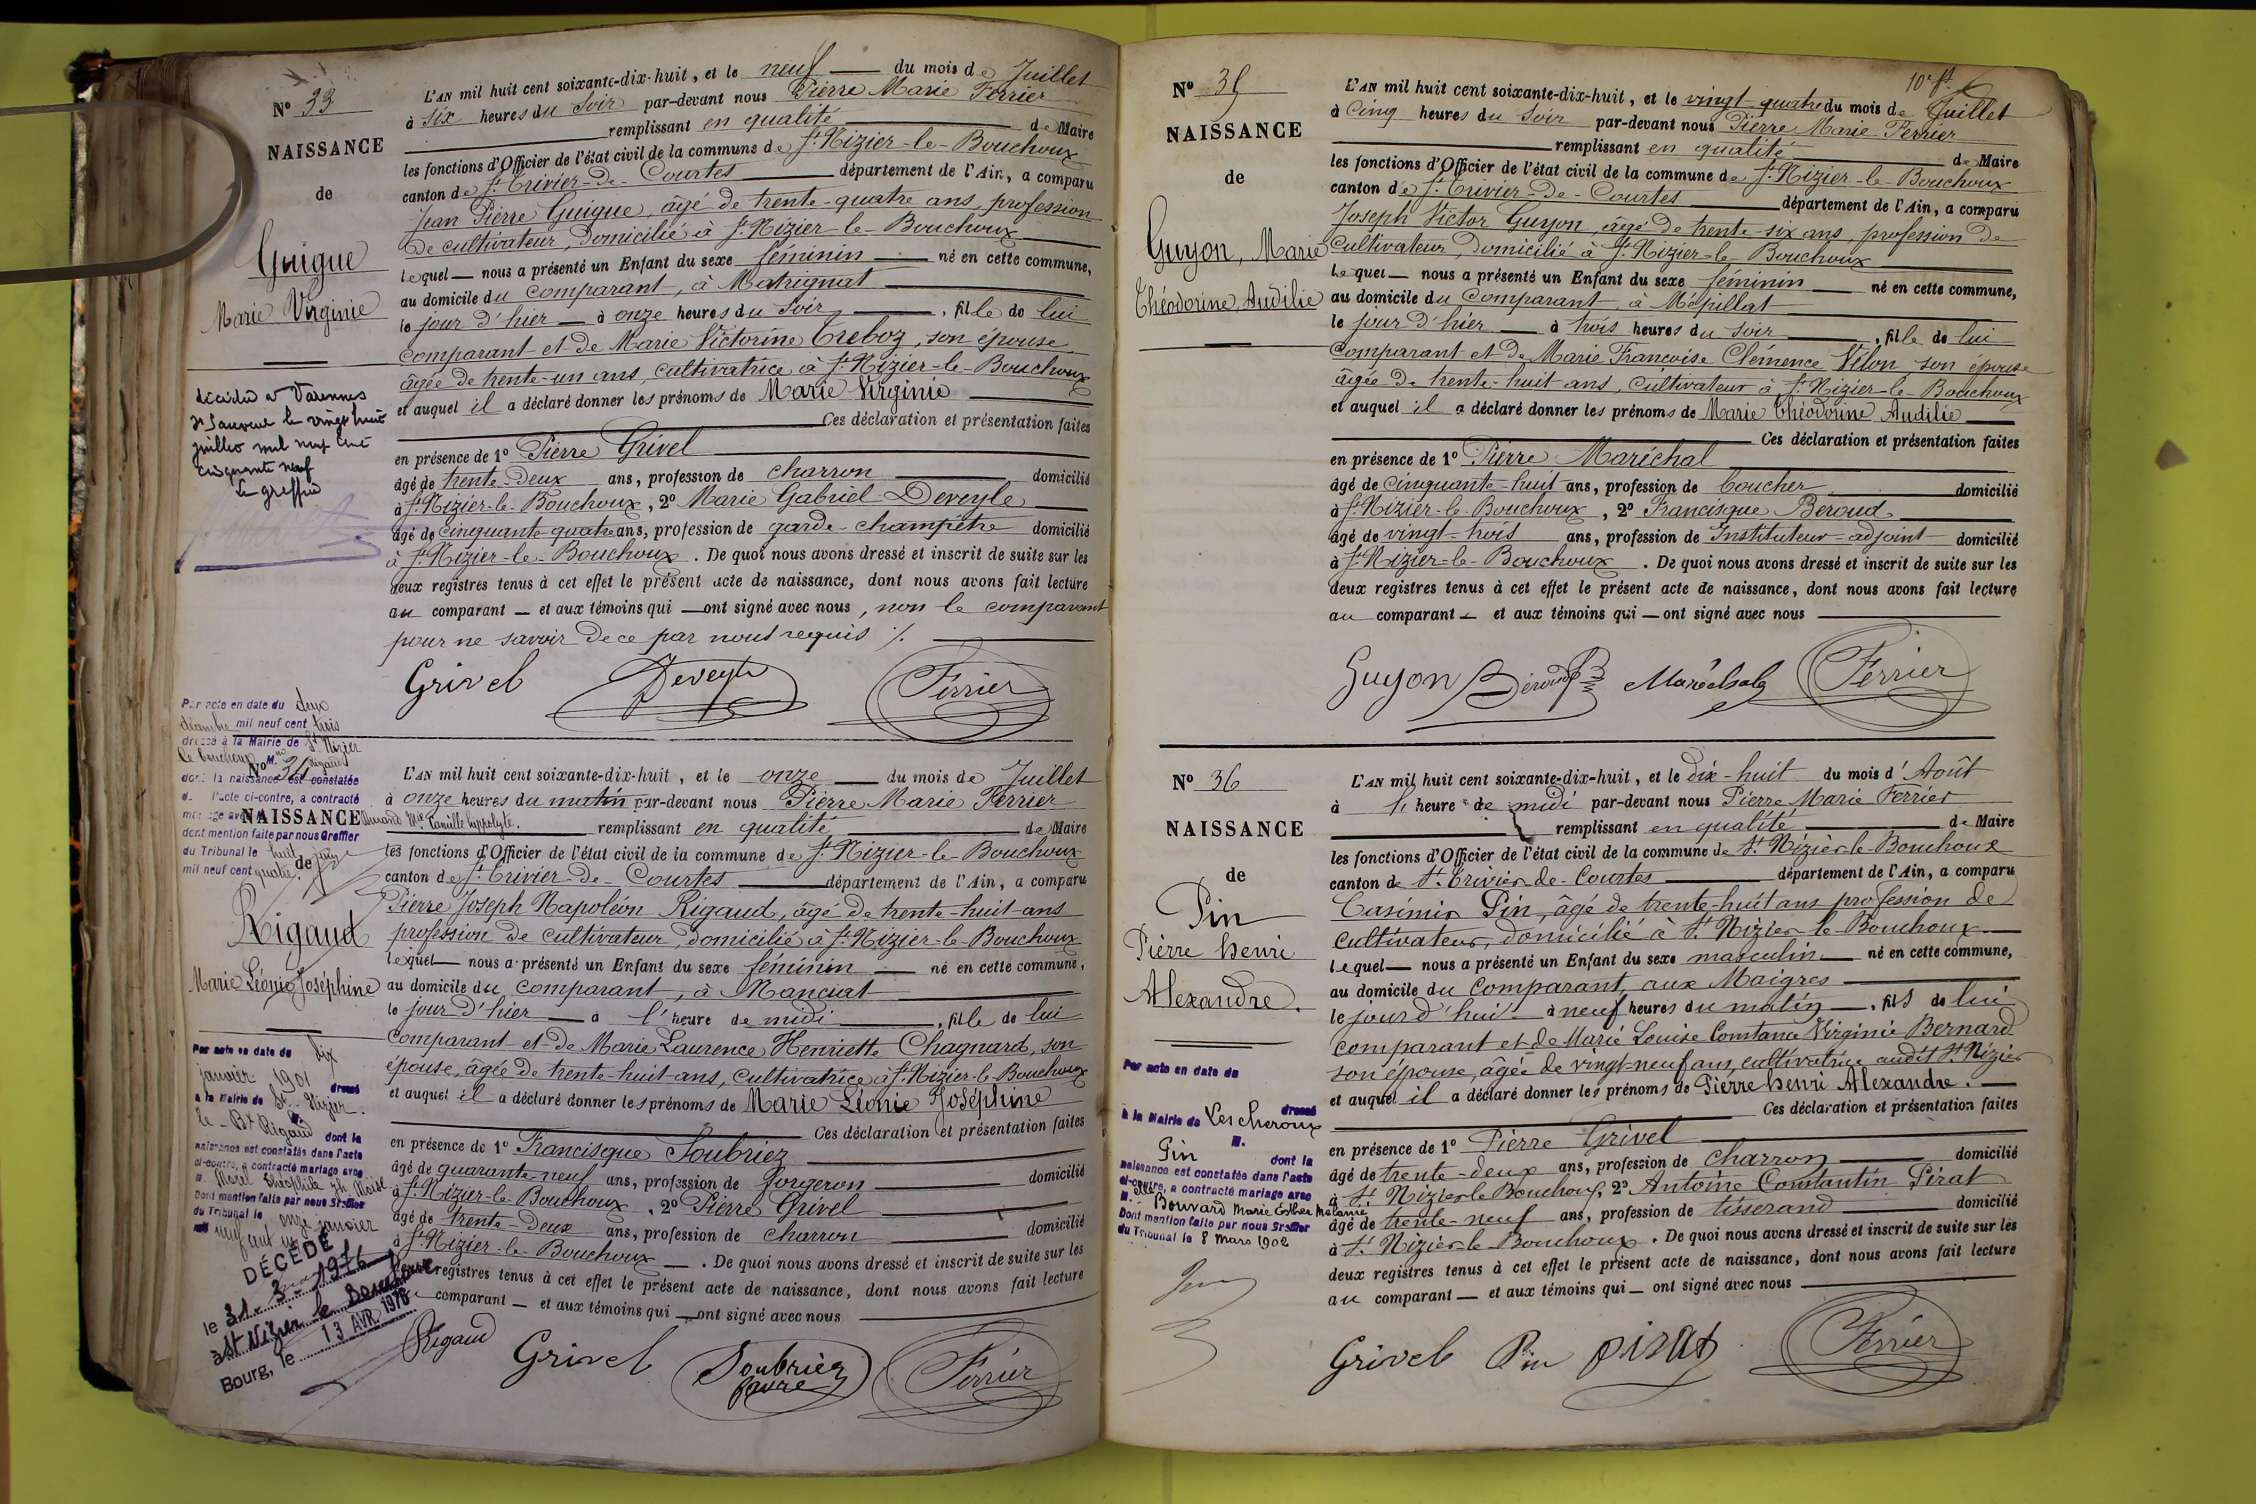 N° 33
NAISSANCE
de
Guigue
Marie Virginie
décédée à Varennes
St Sauveur le vingt huit
juillet mil neuf cent
cinquante neuf
Le greffier
L'AN mil huit cent soixante-dix-huit, et le neuf du mois de Juillet
à six heures du soir par-devant nous Pierre Marie Ferrier
remplissant en qualité de Maire
les fonctions d'Officier de l'état civil de la commune de St Nizier-le-Bouchoux
canton de St Trivier-de-Courtes département de l'Ain, a comparu
Jean Pierre Guigue, âgé de trente-quatre ans, profession
de cultivateur, domicilié à St Nizier-le-Bouchoux
lequel nous a présenté un Enfant du sexe féminin né en cette commune,
au domicile du comparant, à Matrignat
le jour d'hier à onze heures du soir, fille de lui
comparant et de Marie Victorine Treboz, son épouse
âgée de trente-un ans, cultivatrice à St Nizier-le-Bouchoux
et auquel il a déclaré donner les prénoms de Marie Virginie
Ces déclaration et présentation faites
en présence de 1° Pierre Grivel
âgé de trente-deux ans, profession de charron domicilié
à St Nizier-le-Bouchoux, 2° Marie Gabriel Deveyle
âgé de cinquante quatre ans, profession de garde-champêtre domicilié
à St Nizier-le-Bouchoux. De quoi nous avons dressé et inscrit de suite sur les
deux registres tenus à cet effet le présent acte de naissance, dont nous avons fait lecture
au comparant et aux témoins qui ont signé avec nous, non le comparant
pour ne savoir de ce par nous requis ./.
Grivel Deveyle Ferrier
Par acte en date du deux
décembre mil neuf cent trois
dressé à la Mairie de St Nizier
le bouchoux M. Rigaud
dont la naissance est constatée
d. l'acte ci-contre, a contracté
mariage avec Durand Mie Camille hippolyte.
dont mention faite par nous Greffier
du Tribunal le huit juin
mil neuf cent quatre.
N° 34
NAISSANCE
de
Rigaud
Marie Léonie Joséphine
Par acte en date du dix
janvier 1901 dressé
à la Mairie de St Nizier
le-Bx Rigaud dont la
naissance est constatée dans l'acte
ci-contre, a contracté mariage avec
M. Morel Théophile
Dont mention faite par nous Greffier
du Tribunal le onze janvier
mil neuf cent un
DÉCÉDÉ
le 31-3-1976
à St Nizier le Bouchoux
Bourg, le 13 AVR. 1976
L'AN mil huit cent soixante-dix-huit, et le onze du mois de Juillet
à onze heures du matin par-devant nous Pierre Marie Ferrier
remplissant en qualité de Maire
les fonctions d'Officier de l'état civil de la commune de St Nizier-le-Bouchoux
canton de St Trivier-de-Courtes département de l'Ain, a comparu
Pierre Joseph Napoléon Rigaud, âgé de trente-huit-ans
profession de cultivateur, domicilié à St Nizier-le-Bouchoux
lequel nous a présenté un Enfant du sexe féminin né en cette commune,
au domicile du comparant, à Manciat
le jour d'hier à l'heure de midi, fille de lui
comparant et de Marie Laurence Henriette Chagnard, son
épouse, âgée de trente-huit-ans, cultivatrice à St Nizier-le-Bouchoux
et auquel il a déclaré donner les prénoms de Marie Léonie Joséphine
Ces déclaration et présentation faites
en présence de 1° Francisque Soubriez
âgé de quarante-neuf ans, profession de forgeron domicilié
à St Nizier-le-Bouchoux, 2° Pierre Grivel
âgé de trente-deux ans, profession de charron domicilié
à St Nizier-le-Bouchoux. De quoi nous avons dressé et inscrit de suite sur les
deux registres tenus à cet effet le présent acte de naissance, dont nous avons fait lecture
au comparant et aux témoins qui ont signé avec nous
Rigaud Grivel Soubriez Ferrier
N° 35
NAISSANCE
de
Guyon, Marie
Théodorine, Audilie
L'AN mil huit cent soixante-dix-huit, et le vingt quatre du mois de Juillet
à cinq heures du soir par-devant nous Pierre Marie Ferrier
remplissant en qualité de Maire
les fonctions d'Officier de l'état civil de la commune de St Nizier-le-Bouchoux
canton de St Trivier-de-Courtes département de l'Ain, a comparu
Joseph Victor Guyon, âgé de trente-six ans, profession de
cultivateur, domicilié à St Nizier-le-Bouchoux
lequel nous a présenté un Enfant du sexe féminin né en cette commune,
au domicile du comparant, à Mépillat
le jour d'hier à trois heures du soir, fille de lui
comparant et de Marie Françoise Clémence Vélon, son épouse
âgée de trente-huit ans, cultivateur à St Nizier-le-Bouchoux
et auquel il a déclaré donner les prénoms de Marie Théodorine Audilie
Ces déclaration et présentation faites
en présence de 1° Pierre Maréchal
âgé de cinquante-huit ans, profession de boucher domicilié
à St Nizier-le-Bouchoux, 2° Francisque Beroud
âgé de vingt-trois ans, profession de Instituteur-adjoint domicilié
à St Nizier-le-Bouchoux. De quoi nous avons dressé et inscrit de suite sur les
deux registres tenus à cet effet le présent acte de naissance, dont nous avons fait lecture
au comparant et aux témoins qui ont signé avec nous
Guyon Béroud Maréchal Ferrier
N° 36
NAISSANCE
de
Pin
Pierre henri
Alexandre.
Par acte en date du
dressé
à la Mairie de Lescheroux
M.
Pin dont la
naissance est constatée dans l'acte
ci-contre, a contracté mariage avec
M. elle Bouvard Marie Esther Mélanie
Dont mention faite par nous Greffier
du Tribunal le 8 Mars 1902
L'AN mil huit cent soixante-dix-huit, et le dix-huit du mois d'Août
à l'heure de midi par-devant nous Pierre Marie Ferrier
remplissant en qualité de Maire
les fonctions d'Officier de l'état civil de la commune de St Nizier-le-Bouchoux
canton de St Trivier-de-Courtes département de l'Ain, a comparu
Casimir Pin, âgé de trente-huit ans profession de
cultivateur, domicilié à St Nizier-le-Bouchoux
lequel nous a présenté un Enfant du sexe masculin né en cette commune,
au domicile du comparant, aux Maigres
le jour d'hui à neuf heures du matin, fils de lui
comparant et de Marie Louise Constance Virginie Bernard
son épouse, âgée de vingt-neuf ans, cultivatrice audit St Nizier
et auquel il a déclaré donner les prénoms de Pierre henri Alexandre.
Ces déclaration et présentation faites
en présence de 1° Pierre Grivel
âgé de trente-deux ans, profession de charron domicilié
à St Nizier le Bouchoux, 2° Antoine Constantin Pirat
âgé de trente-neuf ans, profession de tisserand domicilié
à St Nizier-le-Bouchoux. De quoi nous avons dressé et inscrit de suite sur les
deux registres tenus à cet effet le présent acte de naissance, dont nous avons fait lecture
au comparant et aux témoins qui ont signé avec nous
Grivel Pin pirat Ferrier